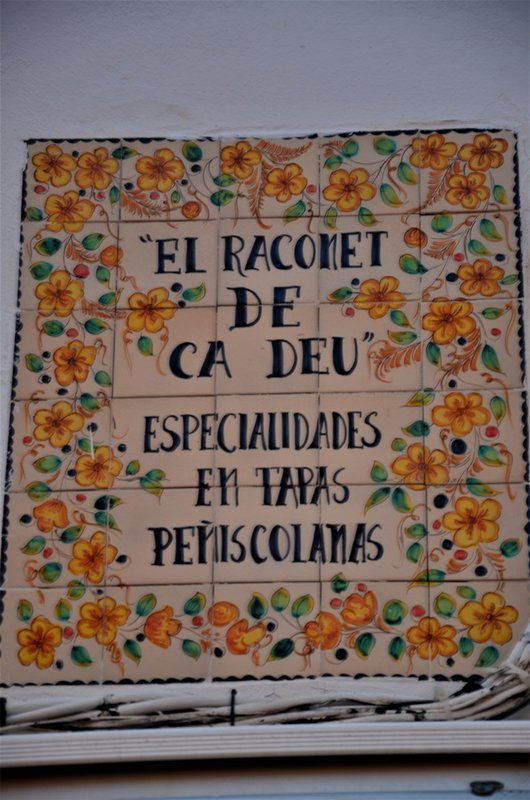 "EL RACONET
DE
CA DEU"
ESPECIALIDADES
EN TAPAS
PEÑISCOLANAS